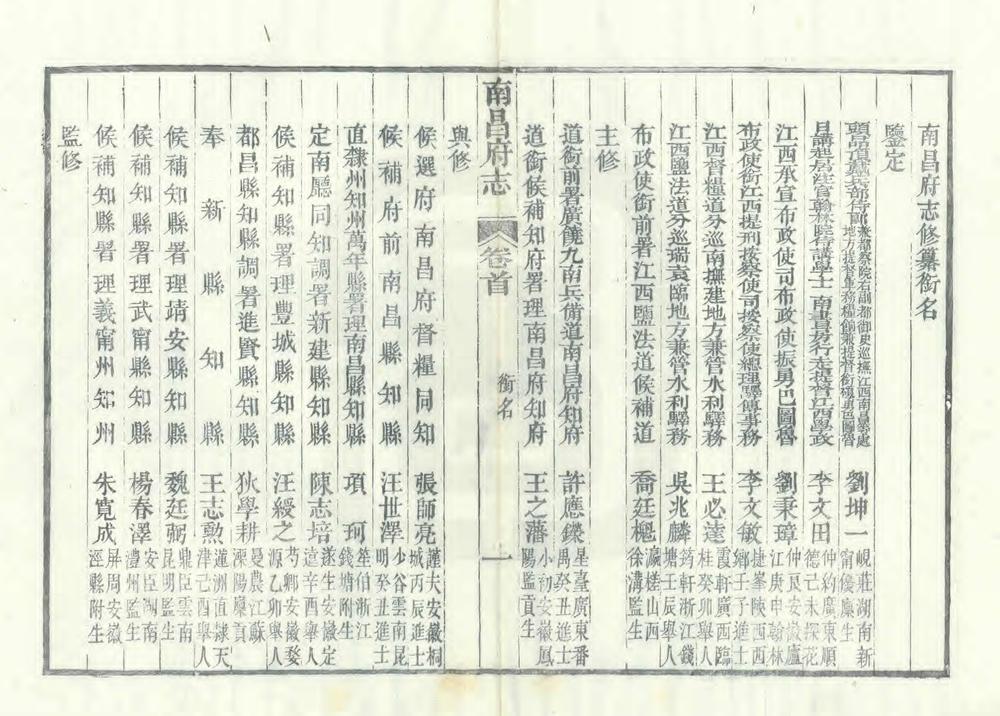 南昌府志修纂銜名
鑒定
頭品頂戴兵部侍郎兼都察院右副都御史巡撫江西南昌等處地方提督軍務糧餉兼提督銜碩勇巴圖魯 劉坤一 峴莊湖南新甯優廩生
日講起居注官翰林院侍講學士 南書房行走提督江西學政 李文田 仲約廣東順德己未探花
江西承宣布政使司布政使振勇巴圖魯 劉秉璋 仲良安徽廬江庚申翰林
布政使銜江西提刑按察使司按察使總理驛傳事務 李文敏 捷峯陝西西鄉壬子進士
江西督糧道分巡南撫建地方兼管水利驛務 王必達 霞軒廣西臨桂癸卯舉人
江西鹽法道分巡瑞袁臨地方兼管水利驛務 吳兆麟 筠軒浙江錢塘壬辰舉人
布政使銜前署江西鹽法道候補道 喬廷櫆 瀛槎山西徐溝監生
主修
道銜前署廣饒九南兵備道南昌府知府 許應鑅 星臺廣東番禺癸丑進士
道銜候補知府署理南昌府知府 王之藩 小初安徽鳳陽監貢生
南昌府志 卷首 銜名 一
與修
候選府南昌府督糧同知 張師亮 謹夫安徽桐城丙辰進士
候補府前南昌縣知縣 汪世澤 少谷雲南昆明癸丑進士
直隸州知州萬年縣署理南昌縣知縣 項珂 笙伯浙江錢塘附生
定南廳同知調署新建縣知縣 陳志培 遂生安徽定遠辛酉舉人
候補知縣署理豐城縣知縣 汪綬之 芍卿安徽婺源乙卯舉人
都昌縣知縣調署進賢縣知縣 狄學耕 曼農江蘇溧陽廩貢
奉新縣知縣 王志勲 蓮洲直隸天津己酉舉人
候補知縣署理靖安縣知縣 魏廷弼 鼎臣雲南昆明監生
候補知縣署理武甯縣知縣 楊春澤 安臣湖南澧州監生
候補知縣署理義甯州知州 朱寬成 屏周安徽涇縣附生
監修